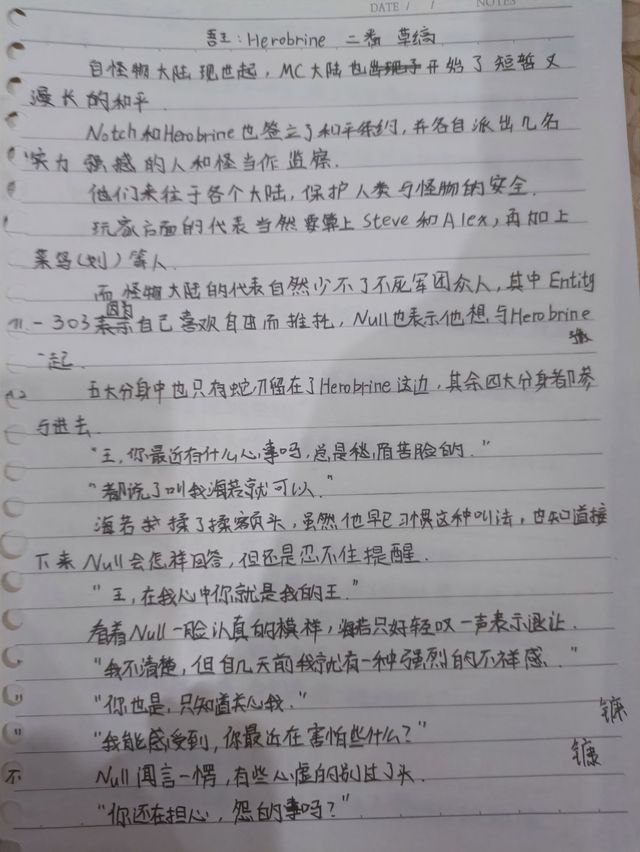 DATE / / NOTES
吾王:Herobrine 二番 草稿
自怪物大陆现世起，MC大陆也开始了短暂又
漫长的和平.
Notch和Herobrine也签立了和平条约，并各自派出几名
实力强越的人和怪当作监察.
他们来往于各个大陆，保护人类与怪物的安全.
玩家方面的代表当然要算上Steve和Alex，再加上
菜鸟(刘)等人.
而怪物大陆的代表自然少不了不死军团众人，其中Entity
-303因为自己喜欢自由而推托，Null也表示他想与Herobrine
一起.
五大分身中也只有蛇刀留在了Herobrine这边，其余四大分身都参
与进去.
"王，你最近有什么心事吗，总是愁眉苦脸的."
"都说了叫我海若就可以."
海若揉了揉额头，虽然他早已习惯这种叫法，也知道接
下来Null会怎样回答，但还是忍不住提醒.
"王，在我心中你就是我的王."
看着Null一脸认真的模样，海若只好轻叹一声表示退让.
"我不清楚，但自几天前我就有一种强烈的不祥感."
"你也是，只知道关心我."
"我能感受到，你最近在害怕些什么?"
Null闻言一愣，有些心虚的别过了头.
"你还在担心，怨的事吗?"